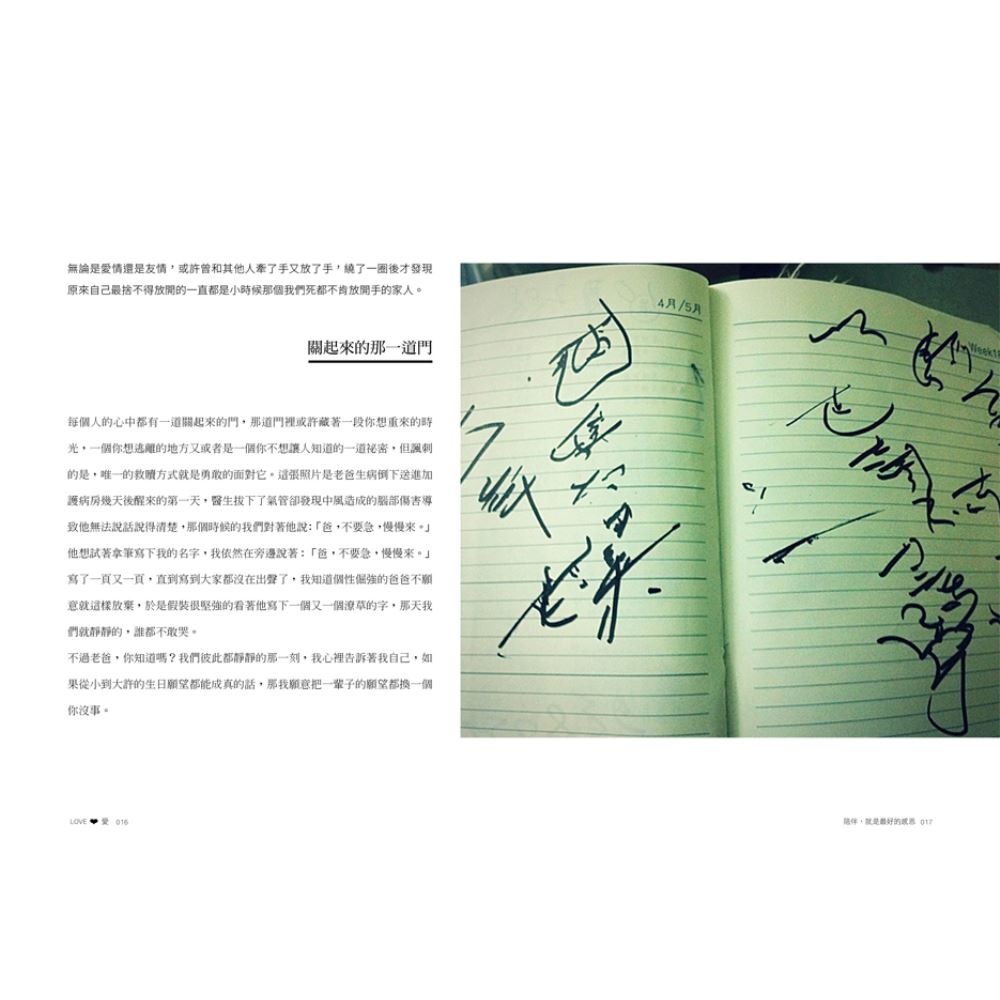 無論是愛情還是友情，或許曾和其他人牽了手又放了手，繞了一圈後才發現
原來自己最捨不得放開的一直都是小時候那個我們死都不肯放開手的家人。
關起來的那一道門
每個人的心中都有一道關起來的門，那道門裡或許藏著一段你想重來的時
光，一個你想逃離的地方又或者是一個你不想讓人知道的一道祕密，但諷刺
的是，唯一的救贖方式就是勇敢的面對它。這張照片是老爸生病倒下送進加
護病房幾天後醒來的第一天，醫生拔下了氣管卻發現中風造成的腦部傷害導
致他無法說話說得清楚，那個時候的我們對著他說：「爸，不要急，慢慢來。」
他想試著拿筆寫下我的名字，我依然在旁邊說著：「爸，不要急，慢慢來。」
寫了一頁又一頁，直到寫到大家都沒在出聲了，我知道個性倔強的爸爸不願
意就這樣放棄，於是假裝很堅強的看著他寫下一個又一個潦草的字，那天我
們就靜靜的，誰都不敢哭。
不過老爸，你知道嗎？我們彼此都靜靜的那一刻，我心裡告訴著我自己，如
果從小到大許的生日願望都能成真的話，那我願意把一輩子的願望都換一個
你沒事。
4月/5月
Week1
LOVE ❤ 愛 016
陪伴，就是最好的感恩 017